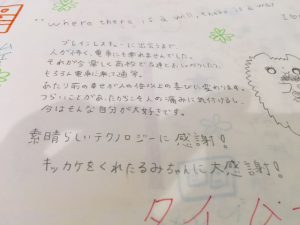 "where there is a will, there is a way
ブレインレスキューに出会うまで
人が怖く、電車にも乗れませんでした。
それが今楽しく高校で
もちろん電車に乗って通学。
あたり前の幸せが人の倍以上の喜びに変わります。
つらいことがあったからこそ人の痛みに気付けるし、
今はそんな自分が大好きです。
素晴らしいテクノロジーに感謝!
キッカケをくれたるみちゃんに大感謝!